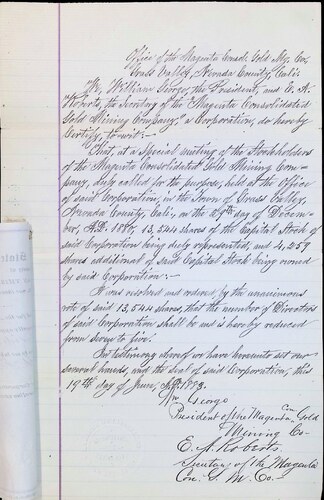 Office of the Magenta Consd. Gold Mg. Co.
Grass Valley, Nevada County, Cali.
We, William George, the President, and E. A.
Roberts, the Secretary of the "Magenta Consolidated
Gold Mining Company," a Corporation, do hereby
Certify, to-wit:-
That, at a special meeting of the Stockholders
of the Magenta Consolidated Gold Mining Com-
pany, duly called for the purpose, held at the Office
of said Corporation, in the Town of Grass Valley,
Nevada County, Cali., on the 29th day of Decem-
ber, A.D. 1886, 13,544 shares of the Capital Stock of
said Corporation being duly represented, and 4,259
shares additional of said Capital Stock being owned
by said Corporation:-
It was resolved and ordered by the unanimous
vote of said 13,544 shares, that the number of Directors
of said Corporation shall be and is hereby reduced
from Seven to five.
In testimony whereof we have hereunto set our
hands, and the seal of said Corporation, this
19th day of June,
Wm George
President of the Magenta Con Gold
Mining Co-
E. A. Roberts
Secretary of the Magenta
Con. G. M. Co.